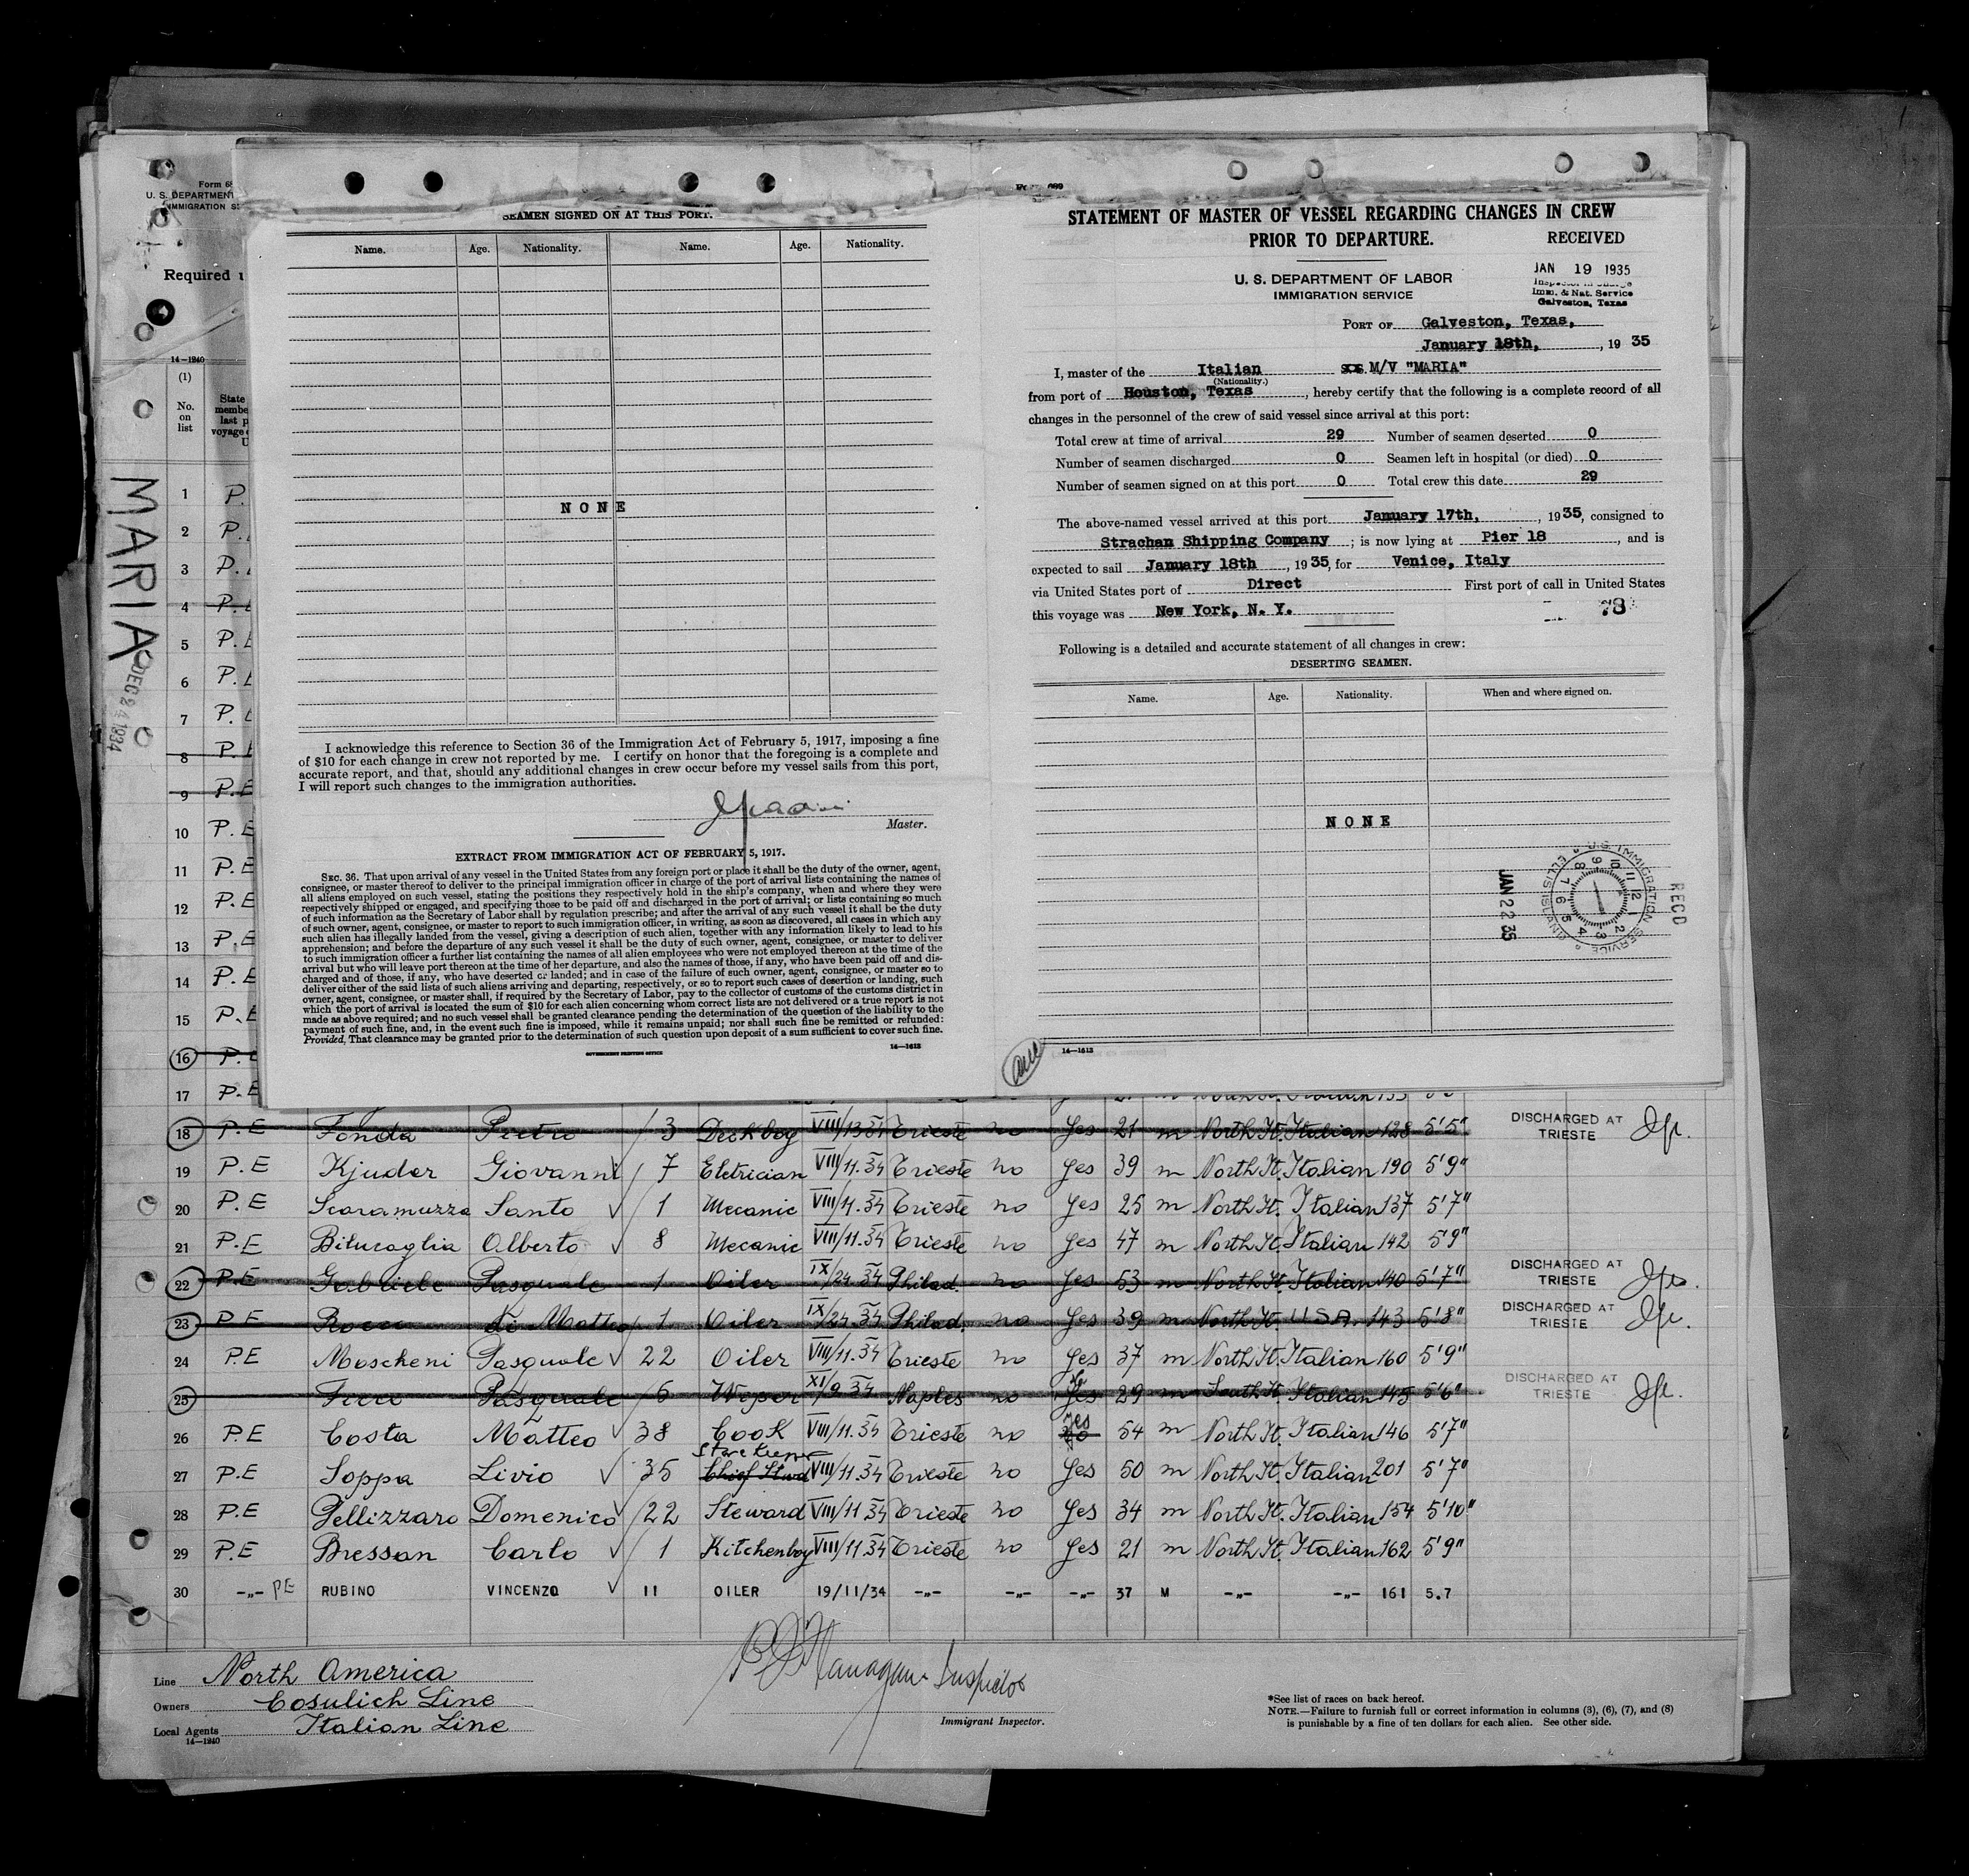 Form 68
U. S. DEPARTMENT
IMMIGRATION S
Required
14—1240
(1)
No. on list
State
membe
last p
voyage
U
MARIA
DEC 24 1934
1 P.
2 P.
3 P.
4 P.
5 P.E
6 P.
7 P.
8 P.
9 P.E
10 P.E
11 P.E
12 P.E
13 P.E
14 P.E
15 P.E
16 P.
17 P.E
SEAMEN SIGNED ON AT THIS PORT.
Name. Age. Nationality. Name. Age. Nationality.
NONE
I acknowledge this reference to Section 36 of the Immigration Act of February 5, 1917, imposing a fine
of $10 for each change in crew not reported by me. I certify on honor that the foregoing is a complete and
accurate report, and that, should any additional changes in crew occur before my vessel sails from this port,
I will report such changes to the immigration authorities.
Master.
EXTRACT FROM IMMIGRATION ACT OF FEBRUARY 5, 1917.
SEC. 36. That upon arrival of any vessel in the United States from any foreign port or place it shall be the duty of the owner, agent,
consignee, or master thereof to deliver to the principal immigration officer in charge of the port of arrival lists containing the names of
all aliens employed on such vessel, stating the positions they respectively hold in the ship's company, when and where they were
respectively shipped or engaged, and specifying those to be paid off and discharged in the port of arrival; or lists containing so much
of such information as the Secretary of Labor shall by regulation prescribe; and after the arrival of any such vessel it shall be the duty
of such owner, agent, consignee, or master to report to such immigration officer, in writing, as soon as discovered, all cases in which any
such alien has illegally landed from the vessel, giving a description of such alien, together with any information likely to lead to his
apprehension; and before the departure of any such vessel it shall be the duty of such owner, agent, consignee, or master to deliver
to such immigration officer a further list containing the names of all alien employees who were not employed thereon at the time of the
arrival but who will leave port thereon at the time of her departure, and also the names of those, if any, who have been paid off and dis-
charged and of those, if any, who have deserted or landed; and in case of the failure of such owner, agent, consignee, or master so to
deliver either of the said lists of such aliens arriving and departing, respectively, or so to report such cases of desertion or landing, such
owner, agent, consignee, or master shall, if required by the Secretary of Labor, pay to the collector of customs of the customs district in
which the port of arrival is located the sum of $10 for each alien concerning whom correct lists are not delivered or a true report is not
made as above required; and no such vessel shall be granted clearance pending the determination of the question of the liability to the
payment of such fine, and, in the event such fine is imposed, while it remains unpaid; nor shall such fine be remitted or refunded:
Provided, That clearance may be granted prior to the determination of such question upon deposit of a sum sufficient to cover such fine.
GOVERNMENT PRINTING OFFICE 14—1613
689
STATEMENT OF MASTER OF VESSEL REGARDING CHANGES IN CREW
PRIOR TO DEPARTURE.
RECEIVED
JAN 19 1935
Inspector in Charge
Imm. & Nat. Service
Galveston, Texas
U. S. DEPARTMENT OF LABOR
IMMIGRATION SERVICE
PORT OF Galveston, Texas,
January 18th, , 19 35
I, master of the Italian SS M/V "MARIA"
(Nationality.)
from port of Houston, Texas , hereby certify that the following is a complete record of all
changes in the personnel of the crew of said vessel since arrival at this port:
Total crew at time of arrival 29 Number of seamen deserted 0
Number of seamen discharged 0 Seamen left in hospital (or died) 0
Number of seamen signed on at this port 0 Total crew this date 29
The above-named vessel arrived at this port January 17th, , 1935, consigned to
Strachan Shipping Company ; is now lying at Pier 18 , and is
expected to sail January 18th , 1935, for Venice, Italy
via United States port of Direct First port of call in United States
this voyage was New York, N. Y.
78
Following is a detailed and accurate statement of all changes in crew:
DESERTING SEAMEN.
Name. Age. Nationality. When and where signed on.
NONE
JAN 22 35
U.S. IMMIGRATION SERVICE ELLIS ISLAND
REC'D
14—1613
18 P.E Fonda Pietro 3 Deckboy VIII/13 34 Trieste no yes 21 m North It. Italian 128 5'5" DISCHARGED AT TRIESTE
19 P.E Kjuder Giovanni 7 Eletrician VIII/11.34 Trieste no yes 39 m North It. Italian 190 5'9"
20 P.E Scaramuzza Santo 1 Mecanic VIII/11.34 Trieste no yes 25 m North It. Italian 137 5'7"
21 P.E Bilucaglia Alberto 8 Mecanic VIII/11.34 Trieste no yes 47 m North It. Italian 142 5'9"
22 P.E Gabriele Pasquale 1 Oiler IX/24.34 Philad. no yes 53 m North It. Italian 140 5'7" DISCHARGED AT TRIESTE
23 P.E Rocco di Matteo 1 Oiler IX/24.34 Philad. no yes 39 m North It. USA. 143 5'8" DISCHARGED AT TRIESTE
24 P.E Moscheni Pasquale 22 Oiler VIII/11.34 Trieste no yes 37 m North It. Italian 160 5'9"
25 Pasquale 6 Wiper XI/9 34 Naples no yes 29 m South It. Italian 145 5'6" DISCHARGED AT TRIESTE
26 P.E Costa Matteo 38 Cook VIII/11.34 Trieste no yes 54 m North It. Italian 146 5'7"
27 P.E Soppa Livio 35 Chief Stwd Store Keeper VIII/11.34 Trieste no yes 50 m North It. Italian 201 5'7"
28 P.E Pellizzaro Domenico 22 Steward VIII/11 34 Trieste no yes 34 m North It. Italian 154 5'10"
29 P.E Bressan Carlo 1 Kitchenboy VIII/11.34 Trieste no yes 21 m North It. Italian 162 5'9"
30 -"- PE RUBINO VINCENZO 11 OILER 19/11/34 -"- -"- -"- 37 M -"- -"- 161 5.7
Line North America
Owners Cosulich Line
Local Agents Italian Line
14—1240
Inspector
Immigrant Inspector.
*See list of races on back hereof.
NOTE.—Failure to furnish full or correct information in columns (3), (6), (7), and (8)
is punishable by a fine of ten dollars for each alien. See other side.